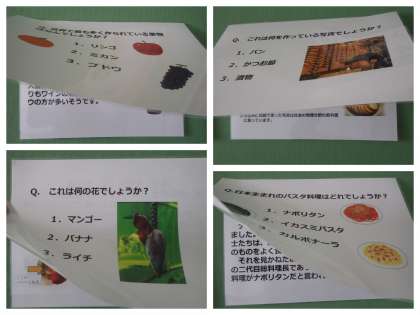 Q. 世界で最も多く作られている果物
でしょうか？
1. リンゴ
2. ミカン
3. ブドウ
りもワインの
ウの方が多いそうです。
Q. これは何を作っている写真でしょうか？
1. パン
2. かつお節
3. 漬物
Q. これは何の花でしょうか？
1. マンゴー
2. バナナ
3. ライチ
Q. 日本生まれのパスタ料理はどれでしょうか？
1. ナポリタン
2. イカスミパスタ
3. カルボナーラ
ました
士たちは、
のものをよく食
それを見かねた
の二代目総料理長であ
料理がナポリタンだと言わ